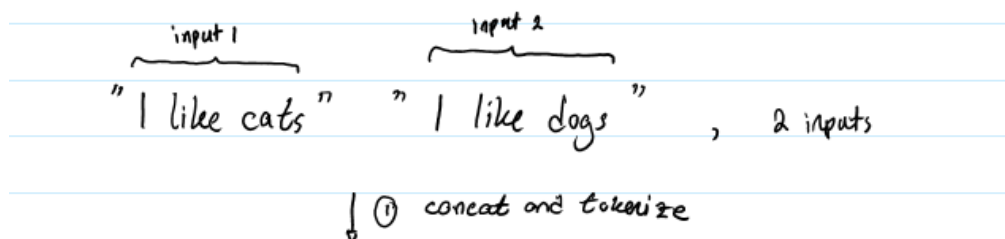 input 1 input 2
"I like cats" "I like dogs" , 2 inputs
① concat and tokenize